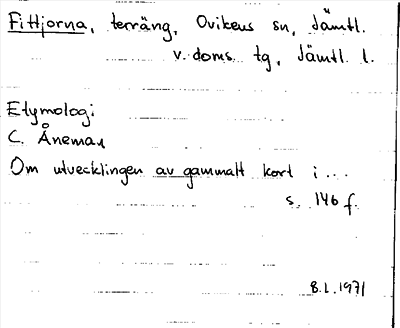 Fittjorna, terräng, Ovikens sn, Jämtl.
v. doms. tg, Jämtl. l.
Etymologi
C. Åneman
Om utvecklingen av gammalt kort i ...
s. 146 f.
8.1.1971